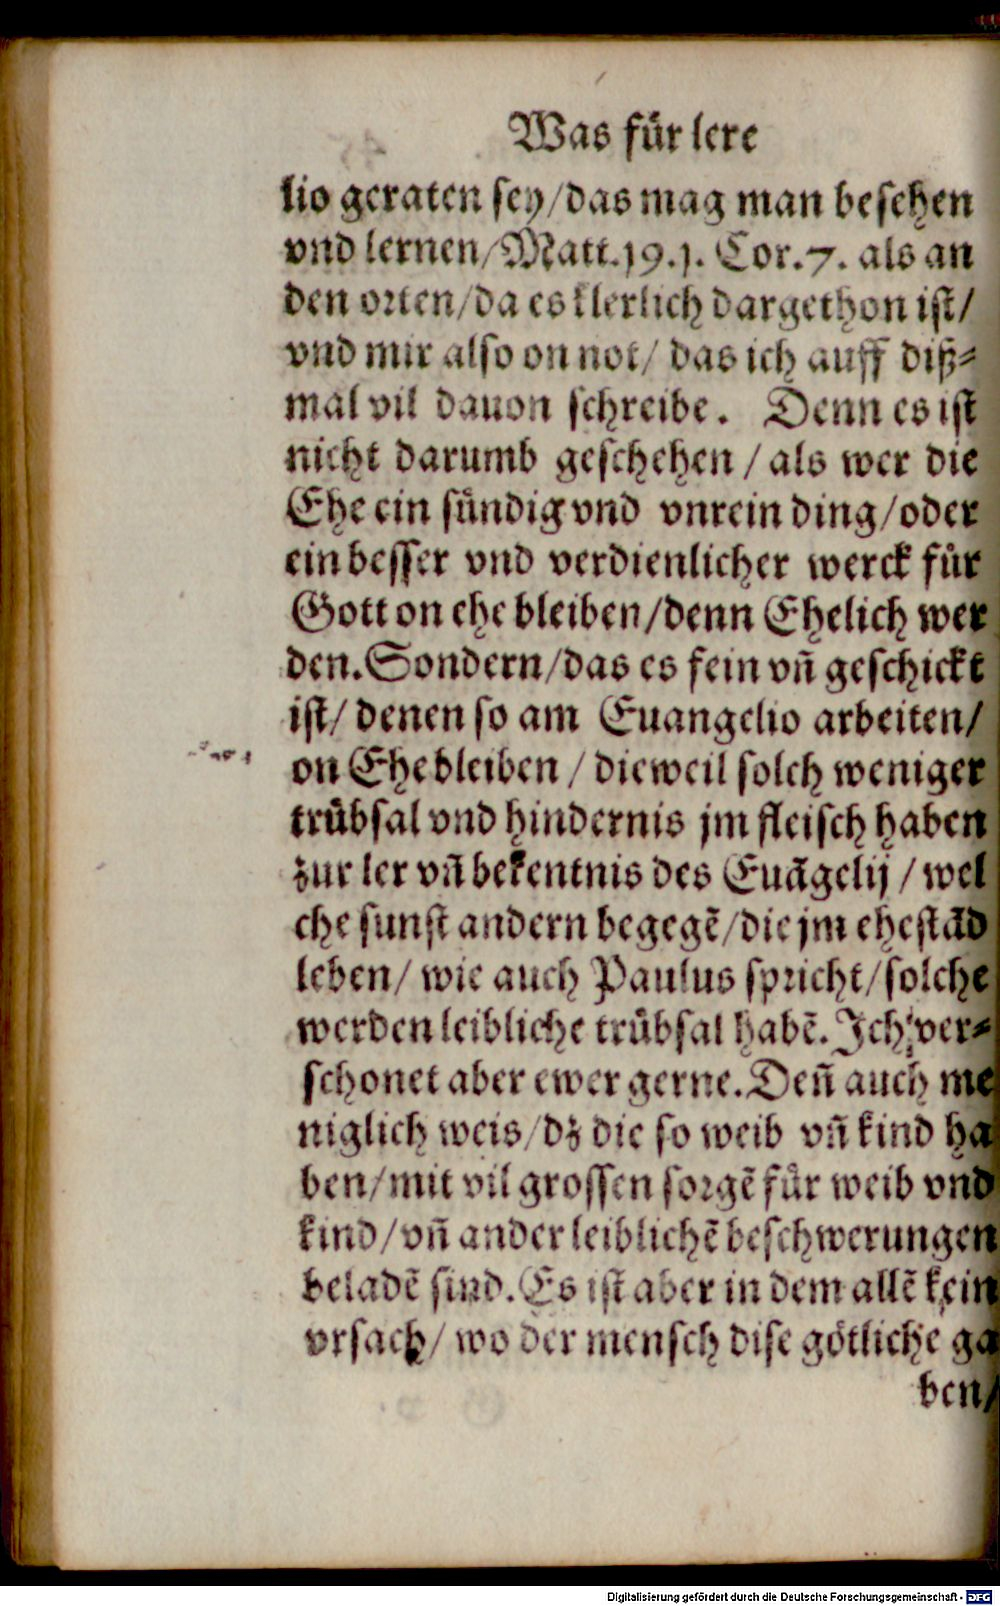 Was für lere
lio geraten sey/das mag man besehen
vnd lernen/Matt.19.1. Cor.7. als an
den orten/da es klerlich dargethon ist/
vnd mir also on not/ das ich auff diß⸗
mal vil dauon schreibe. Denn es ist
nicht darumb geschehen / als wer die
Ehe ein sündig vnd vnrein ding/oder
ein besser vnd verdienlicher werck für
Gott on ehe bleiben/denn Ehelich wer
den.Sondern/das es fein vn̄ geschickt
ist/ denen so am Euangelio arbeiten/
on Ehe bleiben / dieweil solch weniger
trübsal vnd hindernis jm fleisch haben
zur ler vn̄ bekentnis des Euāgelij / wel
che sunst andern begegē/die jm ehestād
leben/ wie auch Paulus spricht/solche
werden leibliche trübsal habē. Ich ver⸗
schonet aber ewer gerne.Den̄ auch me
niglich weis/dz die so weib vn̄ kind ha
ben/mit vil grossen sorgē für weib vnd
kind/vn̄ ander leiblichē beschwerungen
beladē sind.Es ist aber in dem allē kein
vrsach/ wo der mensch dise götliche ga
ben/
Digitalisierung gefördert durch die Deutsche Forschungsgemeinschaft - DFG